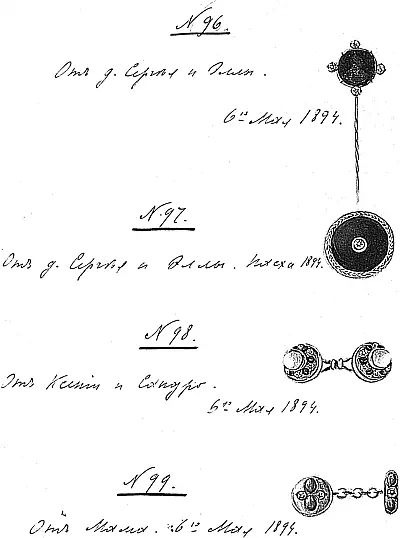 N 96.
Отъ д. Сергѣя и Эллы.
6го Мая 1894.
N. 97.
Отъ д. Сергѣя и Эллы. Пасха 1894.
N 98.
Отъ Ксеніи и Сандро.
6го Мая 1894.
N 99.
Отъ Мама. 6го Мая 1894.